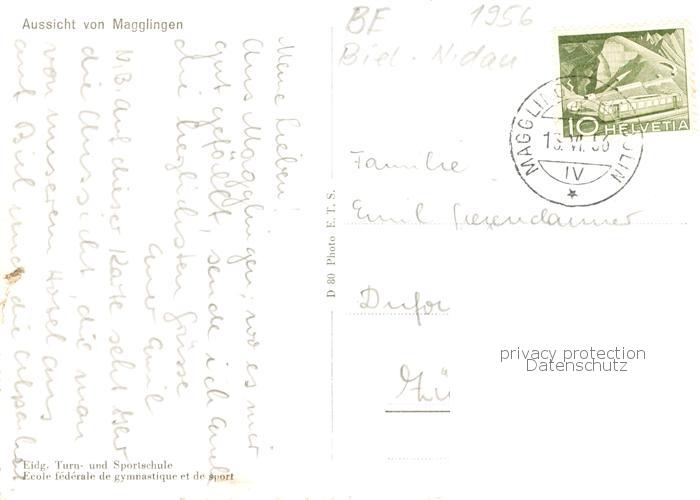 Aussicht von Magglingen
BE 1956
Biel - Nidau
10 HELVETIA
MAGGLINGEN
13. VI. 56
IV
Meine Lieben!
Aus Magglingen, wo es mir
gut gefällt, sende ich Euch
die herzlichsten Grüsse
Euer Emil
N.B. Auf dieser Karte seht Ihr
die Aussicht, die man
von unserem Hotel aus
auf Biel und die Alpen hat
D 80 Photo E. T. S.
Familie
Emil
Dufo
Zü
privacy protection
Datenschutz
Eidg. Turn- und Sportschule
Ecole fédérale de gymnastique et de sport